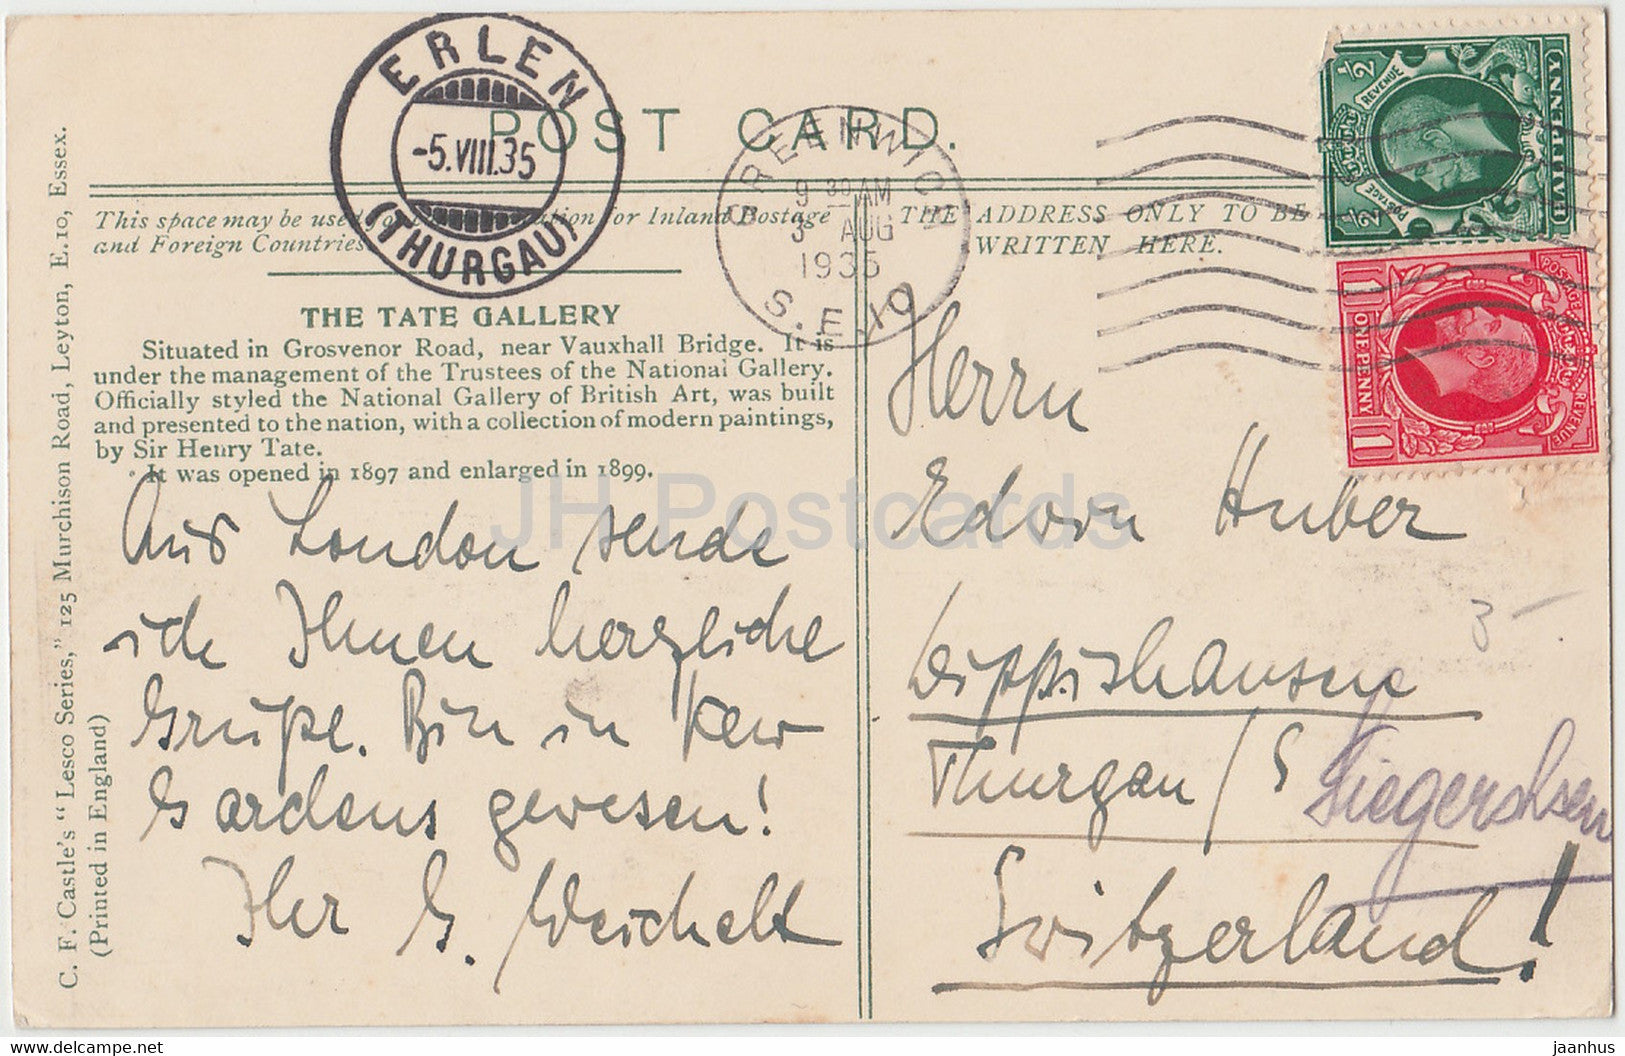 POST CARD.
This space may be used for Inland Postage
and Foreign Countries.
THE ADDRESS ONLY TO BE
WRITTEN HERE.
ERLEN
-5.VIII.35
(THURGAU)
GREENWICH
9 30 AM
3 AUG
1935
S.E.10
½ POSTAGE REVENUE ½
HALFPENNY
POSTAGE REVENUE
1 ONE PENNY 1
THE TATE GALLERY
Situated in Grosvenor Road, near Vauxhall Bridge. It is
under the management of the Trustees of the National Gallery.
Officially styled the National Gallery of British Art, was built
and presented to the nation, with a collection of modern paintings,
by Sir Henry Tate.
It was opened in 1897 and enlarged in 1899.
Aus London sende
ich Ihnen herzliche
Grüße. Bin in Kew
Gardens gewesen!
Ihr G. Weichelt
Herrn
Edwin Huber
Dippishausen
Thurgau / S
Switzerland!
3-
C. F. Castle's "Lesco Series," 125 Murchison Road, Leyton, E.10, Essex.
(Printed in England)
JH Postcards
delcampe.net
jaanhus